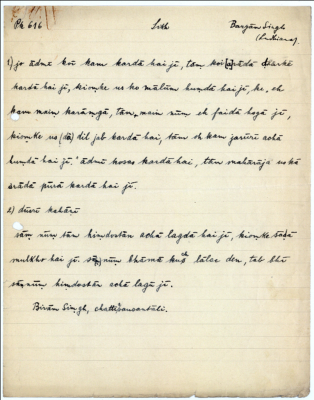 PK 616 Sikh Bargān Singh
(Ludhiana)
1) jo ādmī koī kam kardā hai jī, tām koī [a]rāda karkē
kardā hai jī, kiomke us ko mālūm hundā hai jī, ke, eh
kam main karāmgā, tām, main nūm eh faidā hogā jī,
kiomke us (dā) dil jab kardā hai, tām eh kam jarūrī achā
hundā hai jī. ādmī kosas kardā hai, tām mahārājā uskā
arādā pūrā kardā hai jī.
2) dūsrī kahānī
sām nūm tām hindostān achā lagdā hai jī, kiomke sādā
mulkho hai jī. sām nūm bhāmā kuch lālac den, tab bhī
sām nūm hindostān achā lagū jī.
Birām Singh, chattī